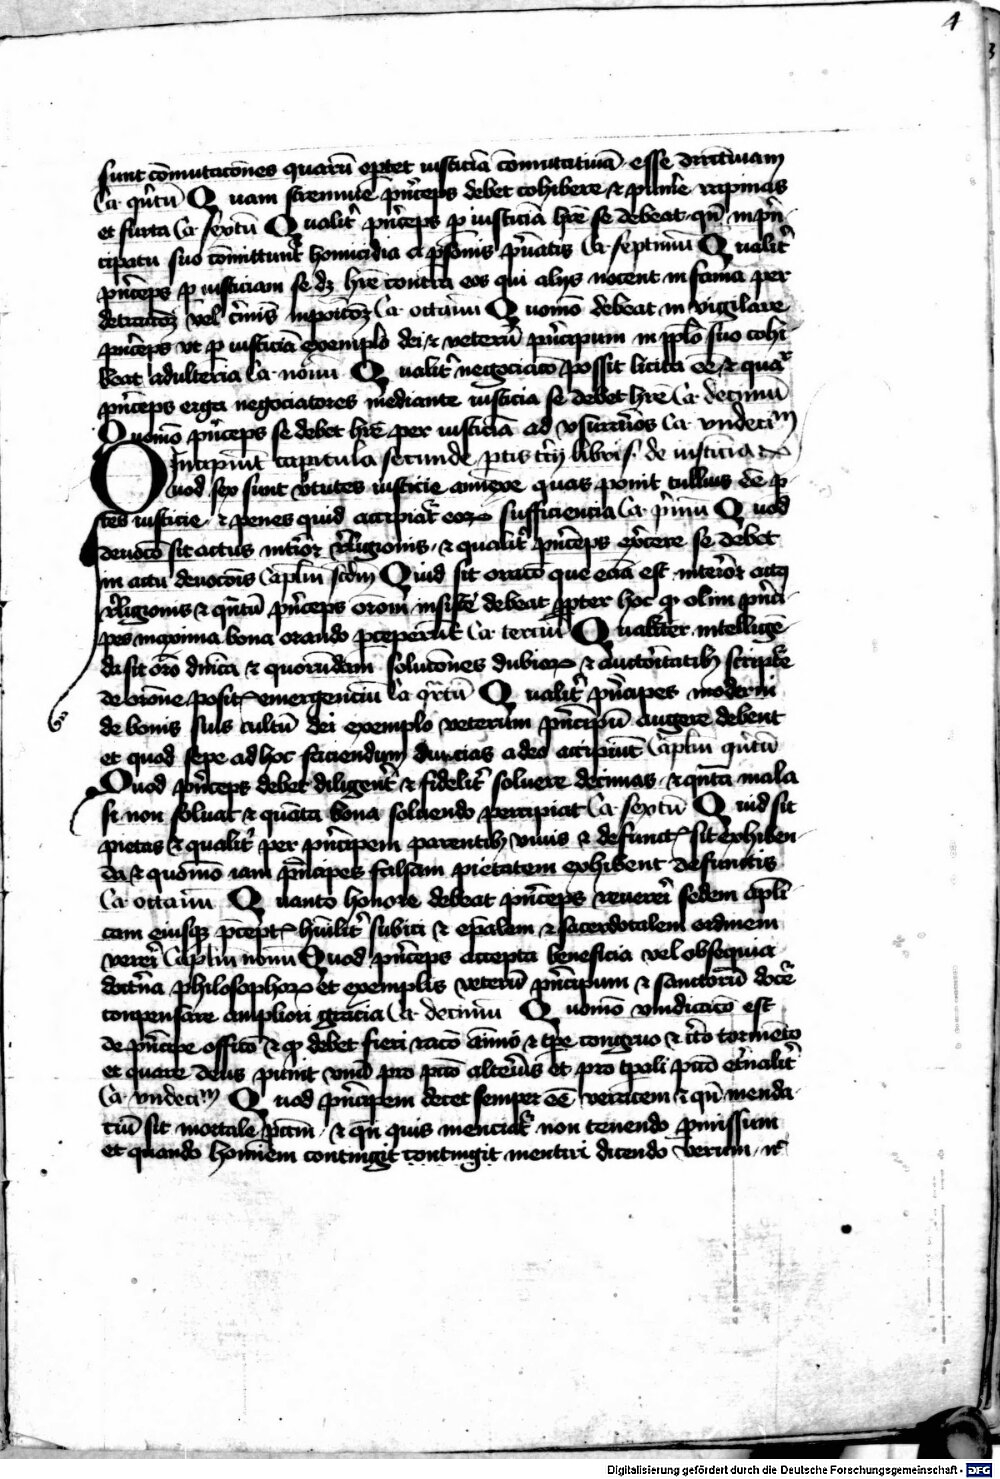 4
sunt cōmutacōnes quarū optet iusticiā cōmutatiuā esse directiuam
Ca qͥntū Quam strennue pͥnceps debet cohibere et punire rapinas
et furta Ca sextū Qualitͥ pͥnceps p iusticiā hr̄e se debeat qn̄ in pͥn
cipatu suo cōmittuntͬ homicidia a psonis pͥuatis Ca septimū Qualitͥ
pͥnceps p iusticiam se dꝫ hr̄e contra eos qui alijs nocent in fama per
vel Ca octauū Quomō debeat in vigilare
pͥnceps vt p iusticiā exemplo dei et veterū pͥncipum in pplo suo cohi
beat adulteria Ca nonū Qualitͥ negociacō possit licita ēe et quaͬ
pͥnceps erga negociatores mediante iusticia se debet hr̄e Ca decimū
Quomō pͥnceps se debet hr̄e per iusticiā ad vsurarios Ca vndecimͫ
Incipiūt capitula secunde ptis tcij libri de iusticia
Quod sex sunt vtutes iusticie annexe quas ponit tullius ēe p
tes iusticie et penes quid accipiatͬ eoꝝ sufficiencia Ca pͥmū Quod
deuocō sit actus intͥor religionis et qualitͥ pͥnceps exͥcere se debet
in actu deuocōis Capͫlm scd̄m Quid sit oracō que eciā est interͥor actꝯ
religionis et qn̄tū pͥnceps orōni insistͤe debeat ppter hoc qͥ olim pͥnci
pes maxima bona orando pceperūt Ca terciū Qualiter intellige
da sit orō dn̄ica et quorūdam solucōnes dubioꝝ et auctoritatibꝫ scriptͤe
de orōne posit emergenciū Ca qͣrtū Qualitͥ pͥncipes moderni
de bonis suis cultū dei exemplo veterum pͥncipū augere debent
et quod sepe ad hoc faciendum diuicias a deo accipiūt Capͫlm qͥntū
Quod pͥnceps debet diligentͥ et fidelitͥ soluere decimas et qn̄ta mala
si non soluat et quāta bona soluendo percipiat Ca sextū Quid sit
pietas et qualitͥ per pͥncipem parentibꝫ viuis et defunctͥ sit exhiben
da et quomō iam pͥncipes falsam pietatem exhibent defunctis
Ca octauū Quanto honore debeat pͥnceps reuereri sedem apli
cam eiusqꝫ pceptͥ hūilitͥ subici et epalem et sacerdotalem ordinem
vereri Capͫlm nonū Quod pͥnceps accepta beneficia vel obsequia
doctͥna philosophoꝝ et exemplis veterū pͥncipum et sanctorū docͤe
conpensare ampliori gracia Ca decimū Quomō vindicacō est
de pͥncipe officō et qͥ debet fieri racō animō et tpe congruo et tormēto
et quare deus punit vnū pro pccō alterͥus et pro tpali pccō etͥnalitͥ
Ca vndecimͫ Quod pͥncipem decet semper ēe veracem et qn̄ menda
ciū sit mortale pccm et qn̄ quis mencietͬ non tenendo pmissum
et quando hominem contingit contingit mentiri dicendo verum
Digitalisierung gefördert durch die Deutsche Forschungsgemeinschaft - DFG